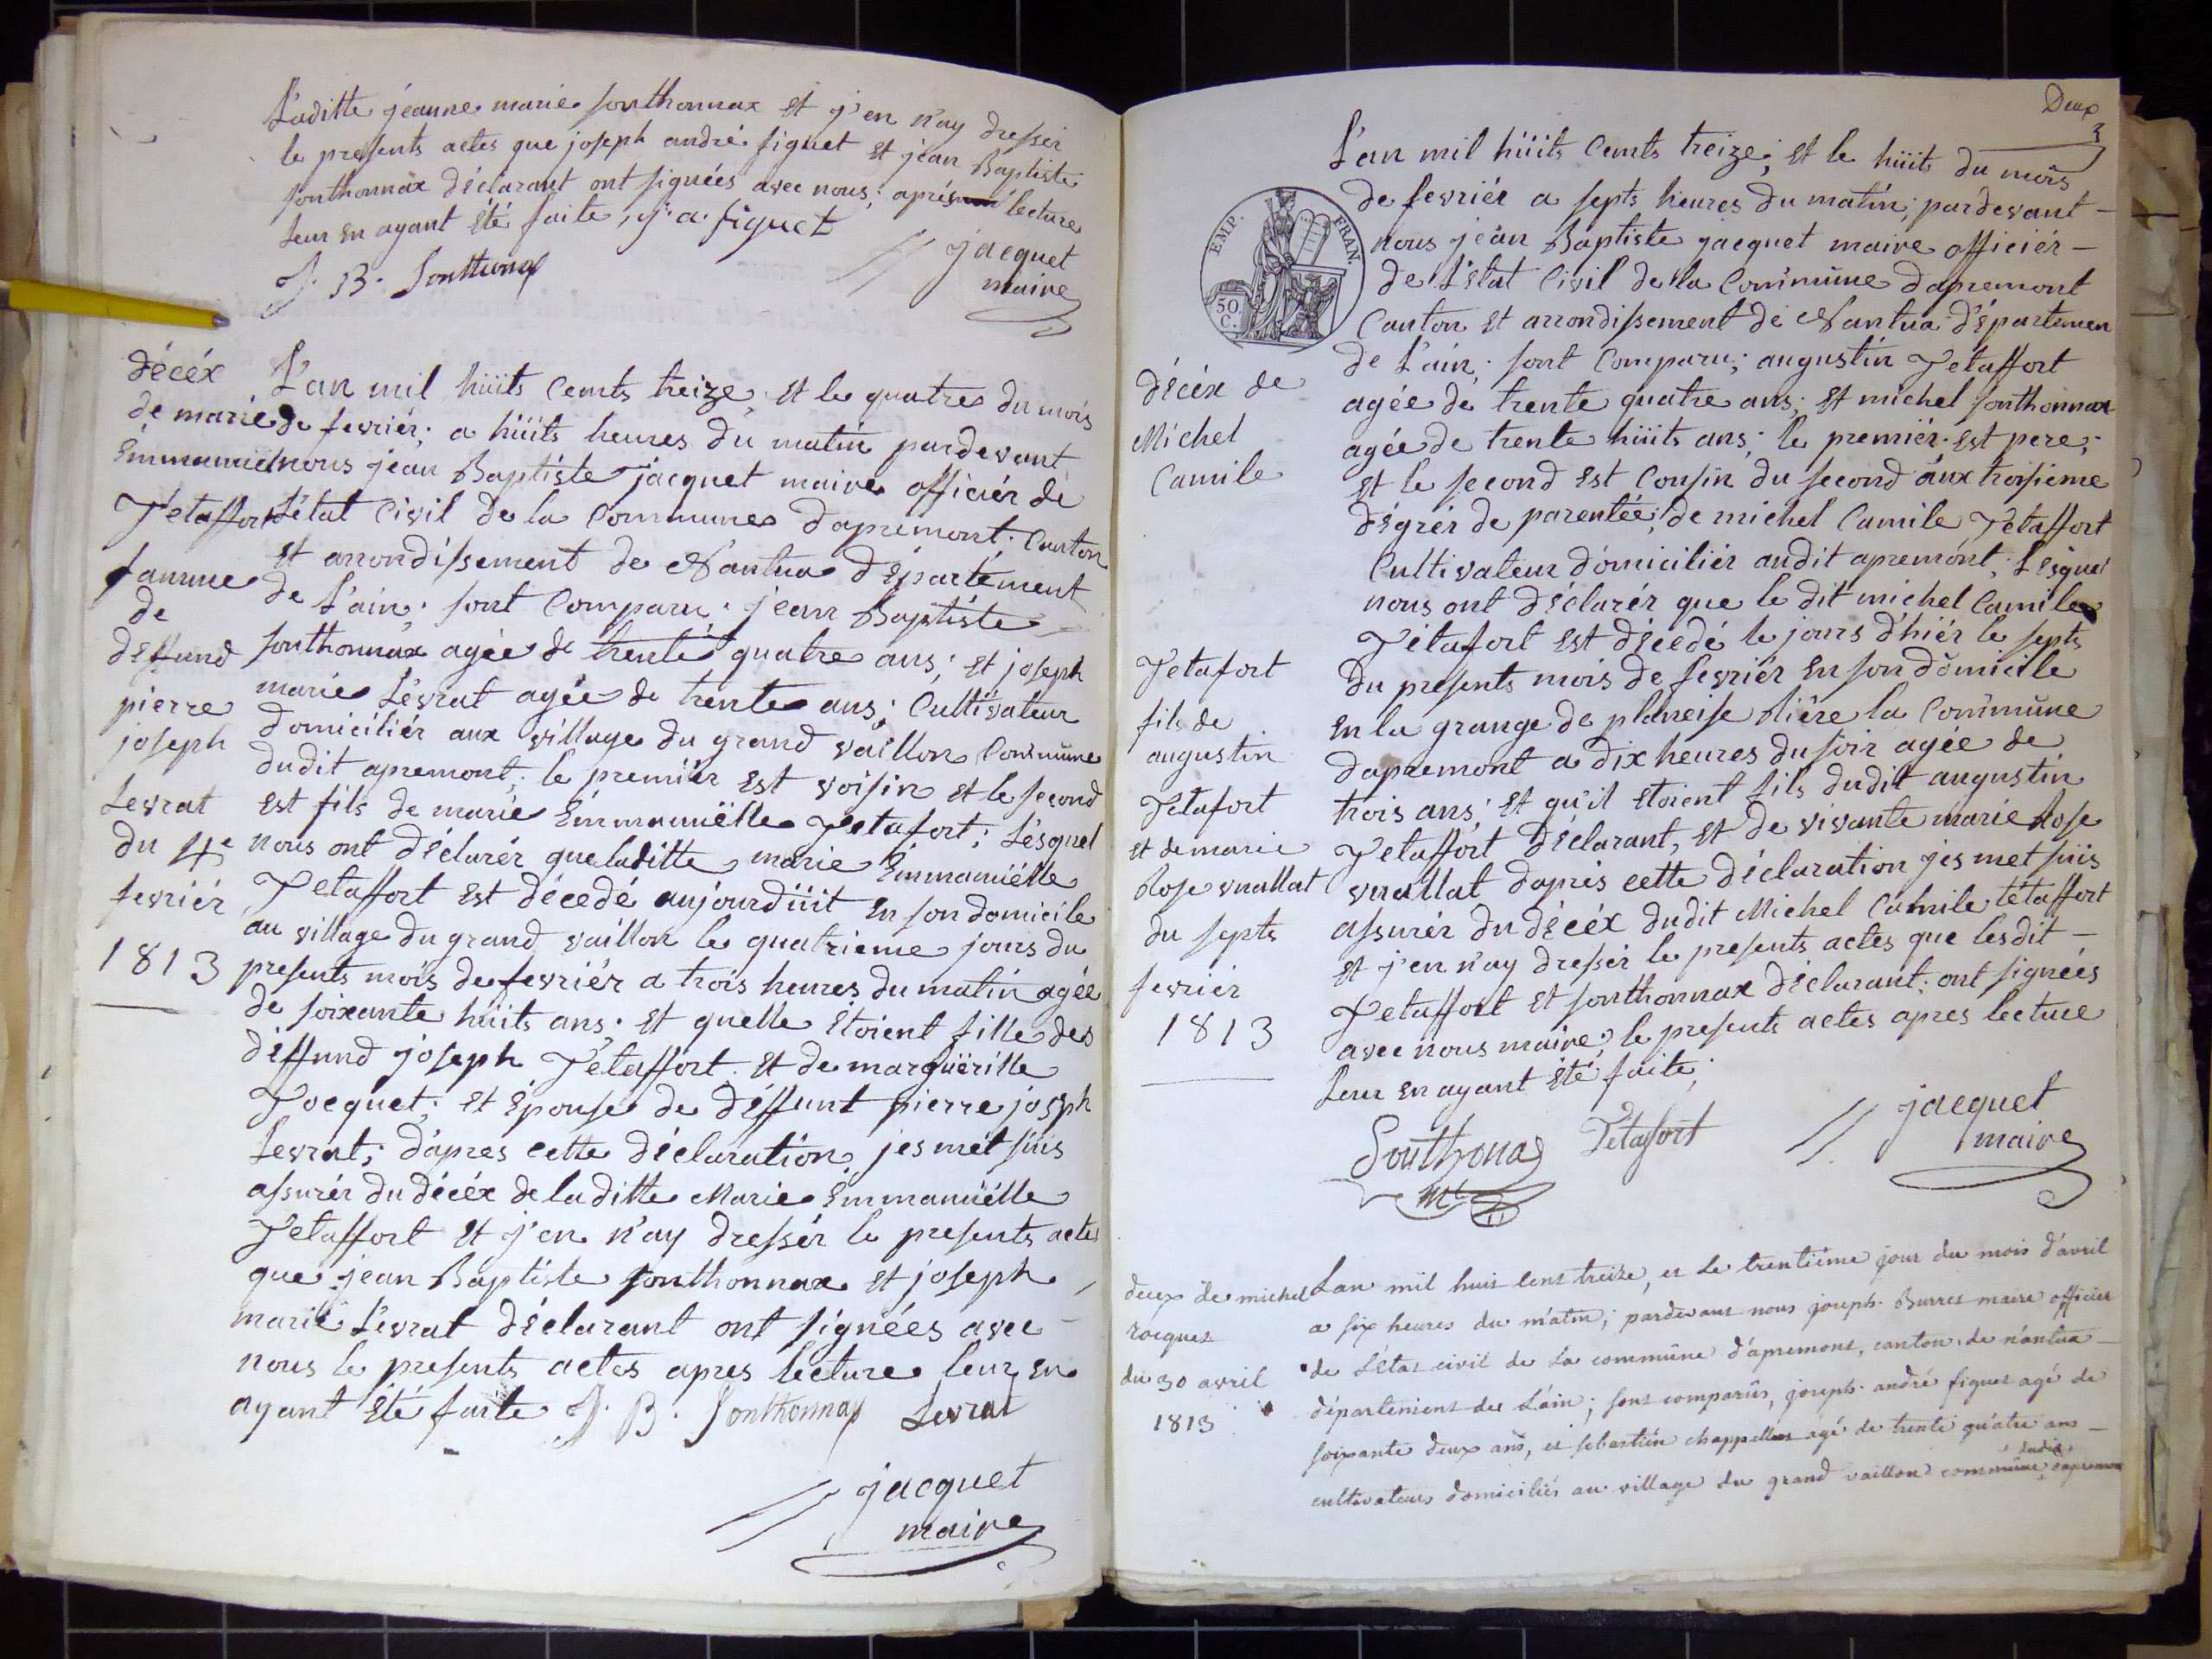 Laditte jeanne marie sonthonnax et j'en n'ay dressér
le presents actes que joseph andré figuet et jean Baptiste
sonthonnax déclarant ont signées avec nous; aprés lecture
leur en ayant été faite, j. a. figuet
J. B. Sonthonax
jacquet
maire
décéx
de marie
Emmanuiel
Tétaffort
famme
de
deffund
pierre
joseph
Levrat
du 4e
fevriér
1813
L'an mil hüits Cents treize, et le quatre du mois
de fevriér; a hüits heures du matin pardevant
nous jean Baptiste jacquet maire officiér de
L'état Civil de la Commune dapremont. Canton
et arrondissement de Nantua département
de L'ain; sont Comparu; jean Baptiste
sonthonnax agée de trente quatre ans; et joseph
marie Levrat agée de trente ans; Cultivateur
domiciliér aux village du grand vaillon Commune
dudit apremont; le premiér est voisin et le second
est fils de marie Emmanuëlle Tetafort; Lésquel
nous ont déclarér que laditte marie Emmanuëlle
Tetaffort est décedé aujourdüit en son domicile
au village du grand vaillon le quatrieme jours du
presents mois de fevriér a trois heures du matin agée
de soixante hüits ans; et quelle étoient fille des
deffund joseph Tétaffort et de margüeritte
Jocquet; et épouse de deffunt pierre josph
Levrat; dapres cette déclaration jes met süis
assurér du décéx de laditte Marie Emmanuëlle
Tetaffort et j'en n'ay dressér le presents actes
que jean Baptiste sonthonnax et joseph
marie Levrat déclarant ont signées avec
nous le presents actes apres lecture leur en
ayant été faite J. B. Sonthonnax Levrat
jacquet
maire
Deux
2
EMP. FRAN.
50
C.
décéx de
Michel
Camile
Tetafort
fils de
augustin
Tetafort
et de marie
Rose vuallat
du septs
fevriér
1813
L'an mil hüits Cents treize; et le hüits du mois
de fevriér a septs heures du matin; pardevant
nous jean Baptiste jacquet maire officiér
de L'état Civil de la Commune dapremont
Canton et arrondissement de Nantua départemen
de L'ain; sont Comparu; augustin Tetaffort
agée de trente quatre ans; et michel sonthonnax
agée de trente hüits ans; le premiér est pere;
et le second est Cousin du second aux troisieme
dégrér de parentée; de michel Camile Tetaffort
Cultivateur domiciliér audit apremont; Lésquel
nous ont déclarér que le dit michel Camile
Tétafort est décedé le jours d'hiér le septs
du presents mois de fevriér en son domicile
en la grange de planeise riére la Commune
dapremont a dix heures du soir agée de
trois ans; et qu'il étoient fils dudit augustin
Tetaffort déclarant, et de vivante marie Rose
vuallat dapres cette déclaration jes met süis
assurér du décéx dudit Michel Camile tétaffort
et j'en n'ay dressér le presents actes que lesdit
Tetaffort et sonthonnax déclarant; ont signées
avec nous maire; le presents actes apres lecture
leur en ayant été faite;
Sonthonax Tetafort
mel
jacquet
maire
deux de michel
rocquet
du 30 avril
1813
Lan mil huit cent treize, et le trentième jour du mois d'avril
a six heures du matin; pardevant nous joseph Burret maire officier
de L'état civil de La commune d'apremont, canton de nantua
département de L'ain; sont comparûs, joseph andré figuet agé de
soixante deux ans, et sebastien chappelle agé de trente quatre ans
cultivateurs domiciliés au village du grand vaillon commune dudit